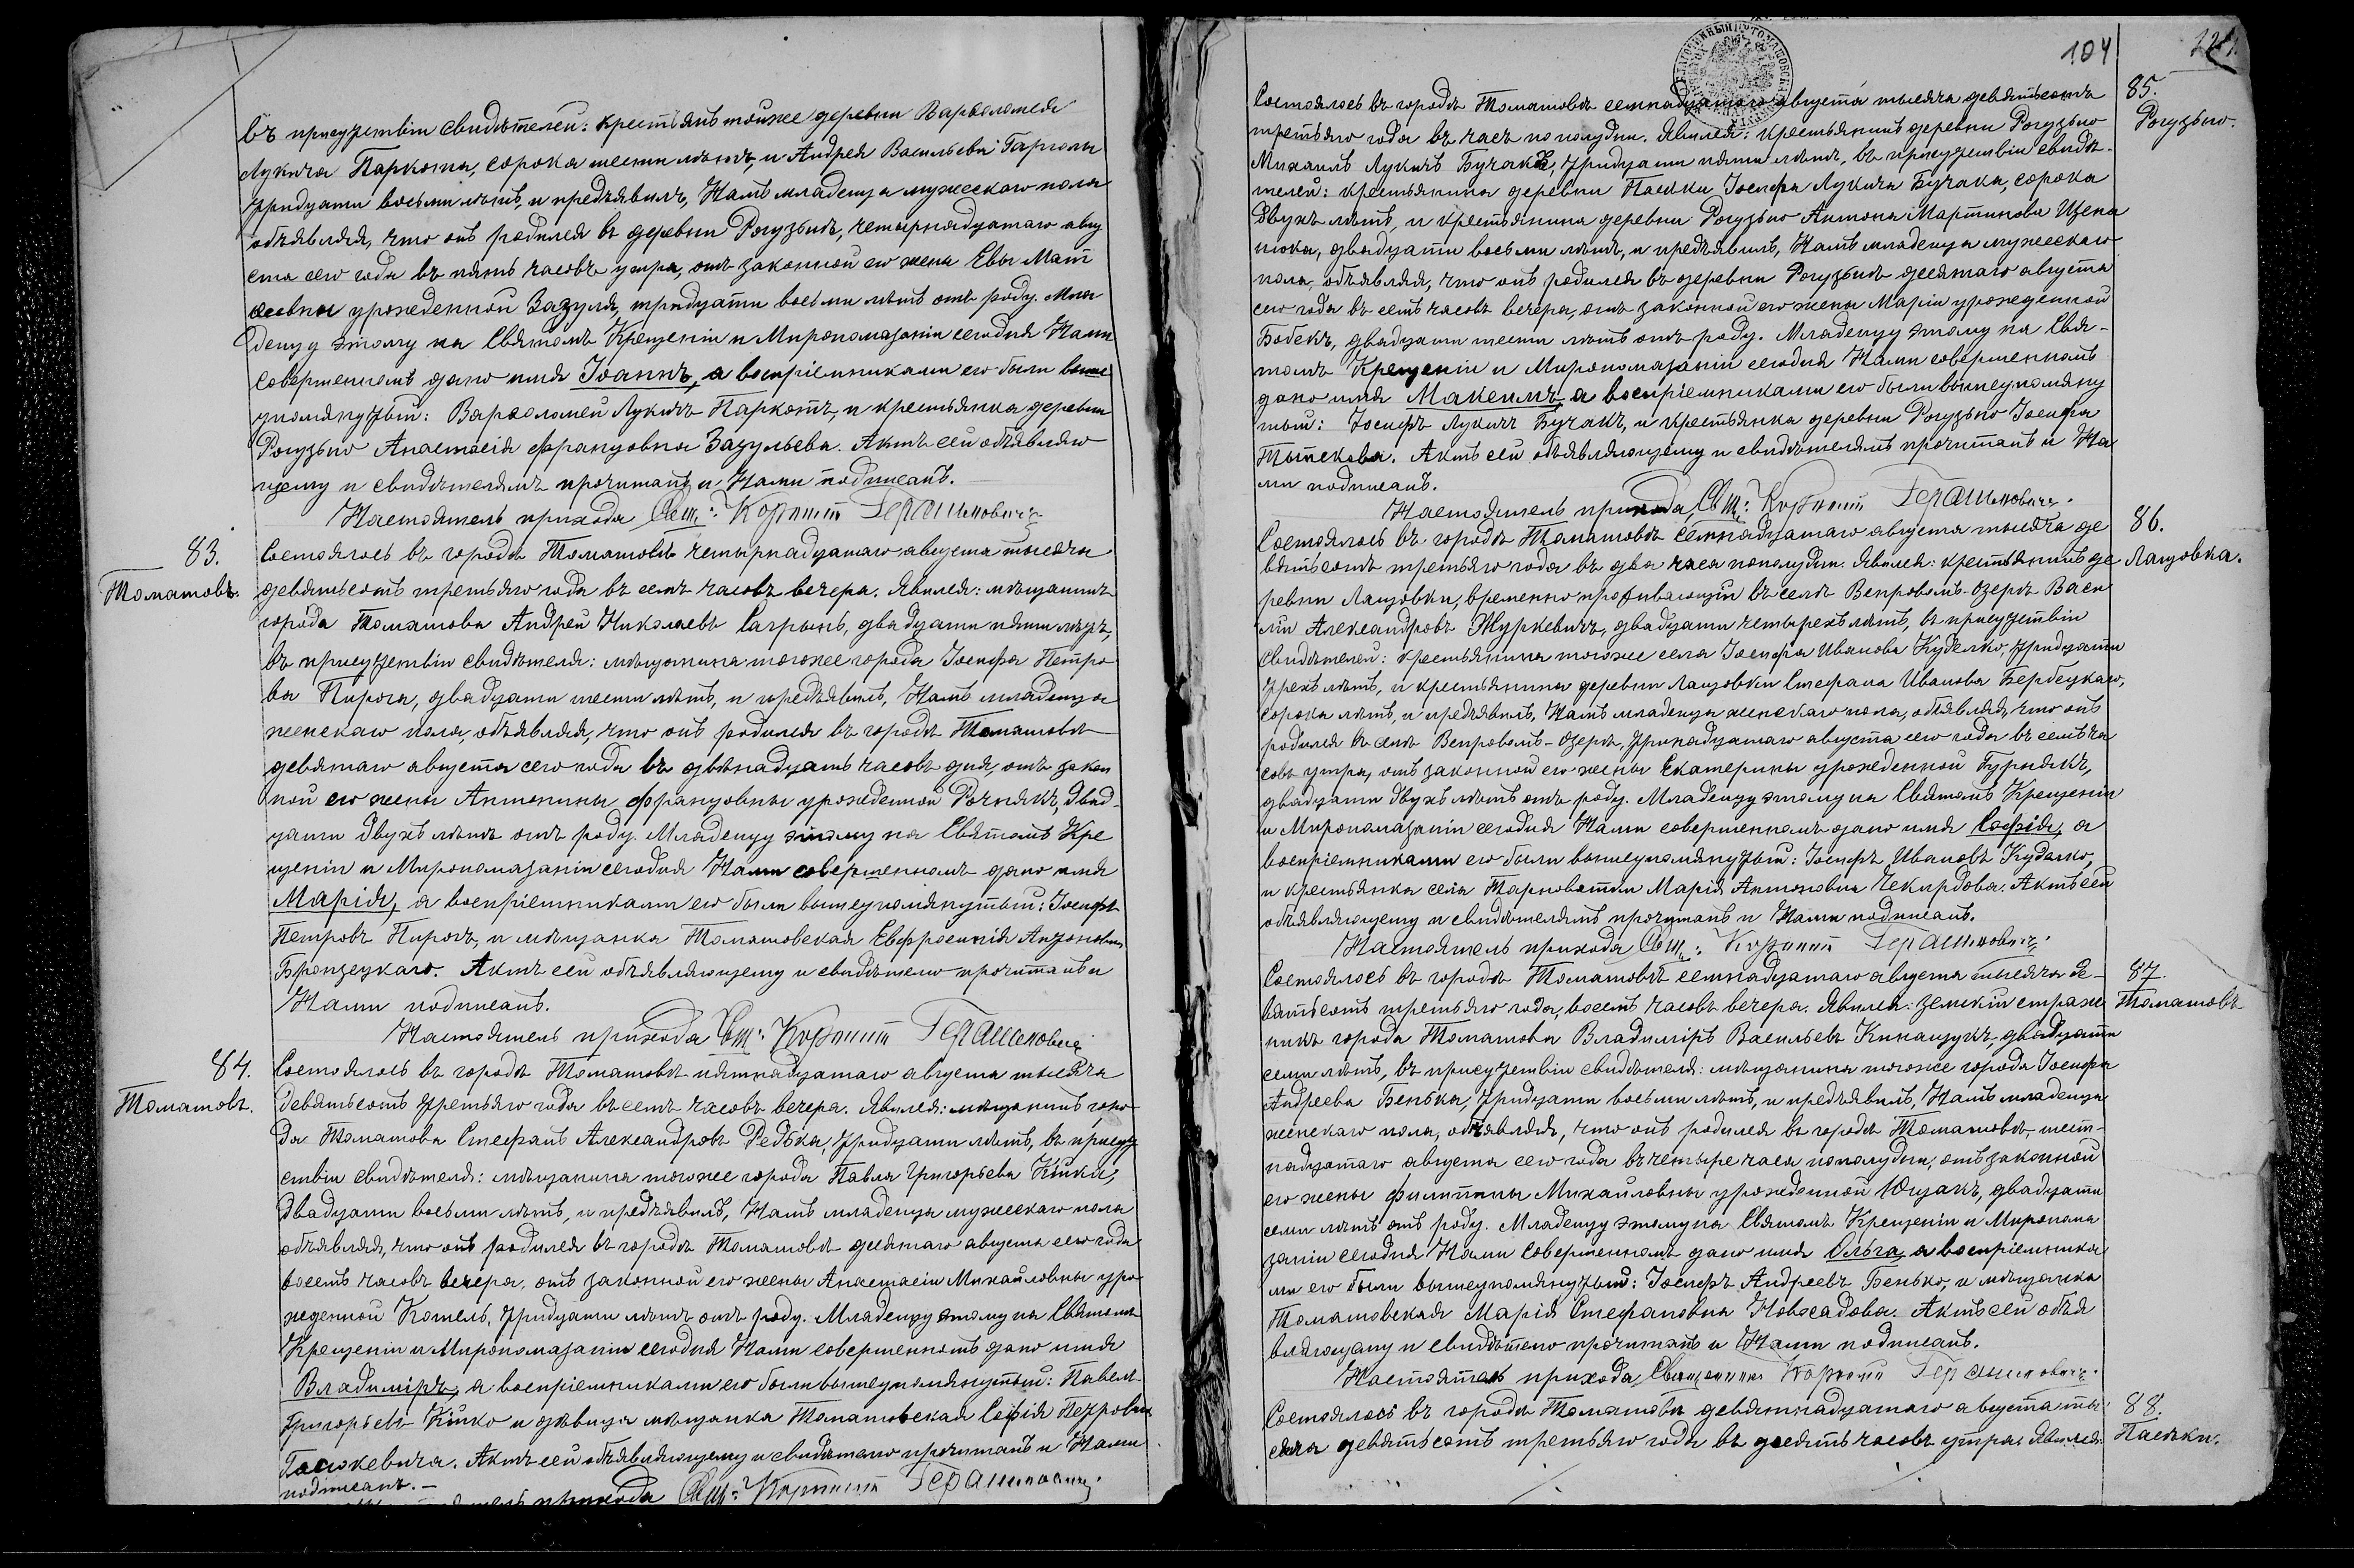 въ присутствіи свидѣтелей: крестьянъ тойже деревни Варѳоломея
Лукича Паркота, сорока шести лѣтъ, и Андрея Васильева Гарголы
тридцати восьми лѣтъ, и предъявилъ, Намъ младенца мужескаго пола
объявляя, что онъ родился въ деревни Рогузьнѣ, четырнадцатаго авгу
ста сего года въ пять часовъ утра, отъ законной его жены Евы Мат
ѳеевны урожденной Зазуля, тридцати восьми лѣтъ отъ роду. Мла
денцу этому на Святомъ Крещеніи и Миропомазаніи сегодня Нами
совершенномъ дано имя Іоаннъ, а воспріемниками его были выше
упомянутый: Варѳоломей Лукичъ Паркотъ, и крестьянка деревни
Рогузьно Анастасія Францовна Зазульева. Актъ сей объявляю
щему и свидѣтелямъ прочитанъ и Нами подписанъ.
Настоятель прихода Свщ: Корнилій Герасимовичъ
83.
Томашовъ.
Состоялось въ городѣ Томашовѣ четырнадцатаго августа тысяча
девятьсотъ третьяго года въ семъ часовъ вечера. Явился: мѣщанинъ
города Томашова Андрей Николаевъ Сагрынь, двадцати пяти лѣтъ,
въ присутствіи свидѣтеля: мѣщанина тогоже города Іосифа Петро
ва Пирога, двадцати шести лѣтъ, и предъявилъ, Намъ младенца
женскаго пола, объявляя, что онъ родился въ городѣ Томашовѣ
девятаго августа сего года въ двѣнадцать часовъ дня, отъ закон
ной его жены Антонины Францовны урожденной Рочнякъ, двад-
цати двухъ лѣтъ отъ роду. Младенцу этому на Святомъ Кре
щеніи и Миропомазаніи сегодня Нами совершенномъ дано имя
Марія, а воспріемниками его были вышеупомянутый: Іосифъ
Петровъ Пирогъ, и мѣщанка Томашовская Евфросинія Антоновна
Бронзецкаго. Актъ сей объявляющему и свидѣтелю прочитанъ и
Нами подписанъ.
Настоятель прихода Свщ: Корнилій Герасимовичъ
84.
Томашовъ.
Состоялось въ городѣ Томашовѣ пятнадцатаго августа тысяча
девятьсотъ третьяго года въ семъ часовъ вечера. Явился: мѣщанинъ горо
да Томашова Стефанъ Александровъ Редька, тридцати лѣтъ, въ присут
ствіи свидѣтеля: мѣщанина тогоже города Павла Григорьева Кицки,
двадцати восьми лѣтъ, и предъявилъ, Намъ младенца мужескаго пола
объявляя, что онъ родился въ городѣ Томашовѣ десятаго августа сего года
восемъ часовъ вечера, отъ законной его жены Анастасіи Михайловны уро-
жденной Котель, тридцати лѣтъ отъ роду. Младенцу этому на Святомъ
Крещеніи и Миропомазаніи сегодня Нами совершенномъ дано имя
Владиміръ, а воспріемниками его были вышеупомянутый: Павелъ
Григорьевъ Кицко и дѣвица мѣщанка Томашовская Софія Петровна
Актъ сей объявляющему и свидѣтелю прочитанъ и Нами
подписанъ.
прихода Свщ: Корнилій Герасимовичъ.
104
85.
Рогузьно.
Состоялось въ городѣ Томашовѣ семнадцатаго августа тысяча девятьсотъ
третьяго года въ часъ пополудни. Явился: крестьянинъ деревни Рогузьно
Михаилъ Лукичъ Бучакъ, тридцати пяти лѣтъ, въ присутствіи свидѣ-
телей: крестьянина деревни Пасѣки Іосифа Лукича Бучака, сорока
двухъ лѣтъ, и крестьянина деревни Рогузьно Антона Мартинова Щепа
нюка, двадцати восьми лѣтъ, и предъявилъ, Намъ младенца мужескаго
пола, объявляя, что онъ родился въ деревни Рогузьнѣ десятаго августа
сего года въ семъ часовъ вечера, отъ законной его жены Маріи урожденной
Бобекъ, двадцати шести лѣтъ отъ роду. Младенцу этому на Свя-
томъ Крещеніи и Миропомазаніи сегодня Нами совершенномъ
дано имя Максимъ, а воспріемниками его были вышеупомяну
тый: Іосифъ Лукичъ Бучакъ, и крестьянка деревни Рогузьно Іосифа
Актъ сей объявляющему и свидѣтелямъ прочитанъ и На
ми подписанъ.
Настоятель прихода Свщ: Корнилій Герасимовичъ.
86.
Лащовка.
Состоялось въ городѣ Томашовѣ семнадцатаго августа тысяча де
вятьсотъ третьяго года въ два часа пополудни. Явился: крестьянинъ де
ревни Лащовки, временно проживающій въ селѣ Вепровомъ-Озерѣ Васи
лій Александровъ Журкевичъ, двадцати четырехъ лѣтъ, въ присутствіи
свидѣтелей: крестьянина тогоже села Іосифа Иванова Куделко, тридцати
трехъ лѣтъ, и крестьянина деревни Лащовки Стефана Иванова Бербецкаго,
сорока лѣтъ, и предъявилъ, Намъ младенца женскаго пола, объявляя, что онъ
родился въ селѣ Вепровомъ-Озерѣ, тринадцатаго августа сего года въ семъ ча
совъ утра, отъ законной его жены Екатерины урожденной Бурнякъ,
двадцати двухъ лѣтъ отъ роду. Младенцу этому на Святомъ Крещеніи
и Миропомазаніи сегодня Нами совершенномъ дано имя Софія, а
воспріемниками его были вышеупомянутый: Іосифъ Ивановъ Куделко,
и крестьянка села Тарноватки Марія Антоновна Чекирдова. Актъ сей
объявляющему и свидѣтелямъ прочитанъ и Нами подписанъ.
Настоятель прихода Свщ: Корнилій Герасимовичъ.
87.
Томашовъ
Состоялось въ городѣ Томашовѣ семнадцатаго августа тысяча де-
вятьсотъ третьяго года, восемъ часовъ вечера. Явился: земскій страж
никъ города Томашова Владиміръ Васильевъ Кинащукъ, двадцати
семи лѣтъ, въ присутствіи свидѣтеля: мѣщанина тогоже города Іосифа
Андреева Бенька, тридцати восьми лѣтъ, и предъявилъ, Намъ младенца
женскаго пола, объявляя, что онъ родился въ городѣ Томашовѣ, шест-
надцатаго августа сего года въ четыре часа пополудни, отъ законной
его жены Филиппины Михайловны урожденной Ющакъ, двадцати
семи лѣтъ отъ роду. Младенцу этому на Святомъ Крещеніи и Миропома
заніи сегодня Нами совершенномъ дано имя Ольга, а воспріемника
ми его были вышеупомянутый: Іосифъ Андреевъ Бенько, и мѣщанка
Томашовская Марія Стефановна Новосадова. Актъ сей объя
вляющему и свидѣтелю прочитанъ и Нами подписанъ.
Настоятель прихода, Священникъ Корнилій Герасимовичъ.
88.
Пасѣки.
Состоялось въ городѣ Томашовѣ девятнадцатаго августа ты-
сяча девятьсотъ третьяго года въ десять часовъ утра. Явился: